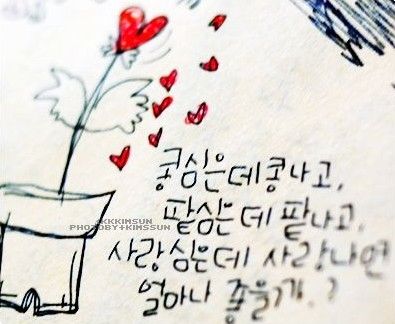 콩심은데콩나고,
팥심은데 팥나고,
사랑심은데 사랑나면
얼마나 좋을까.?
KKKIMSUN
PHOTOBY+KIMSSUN